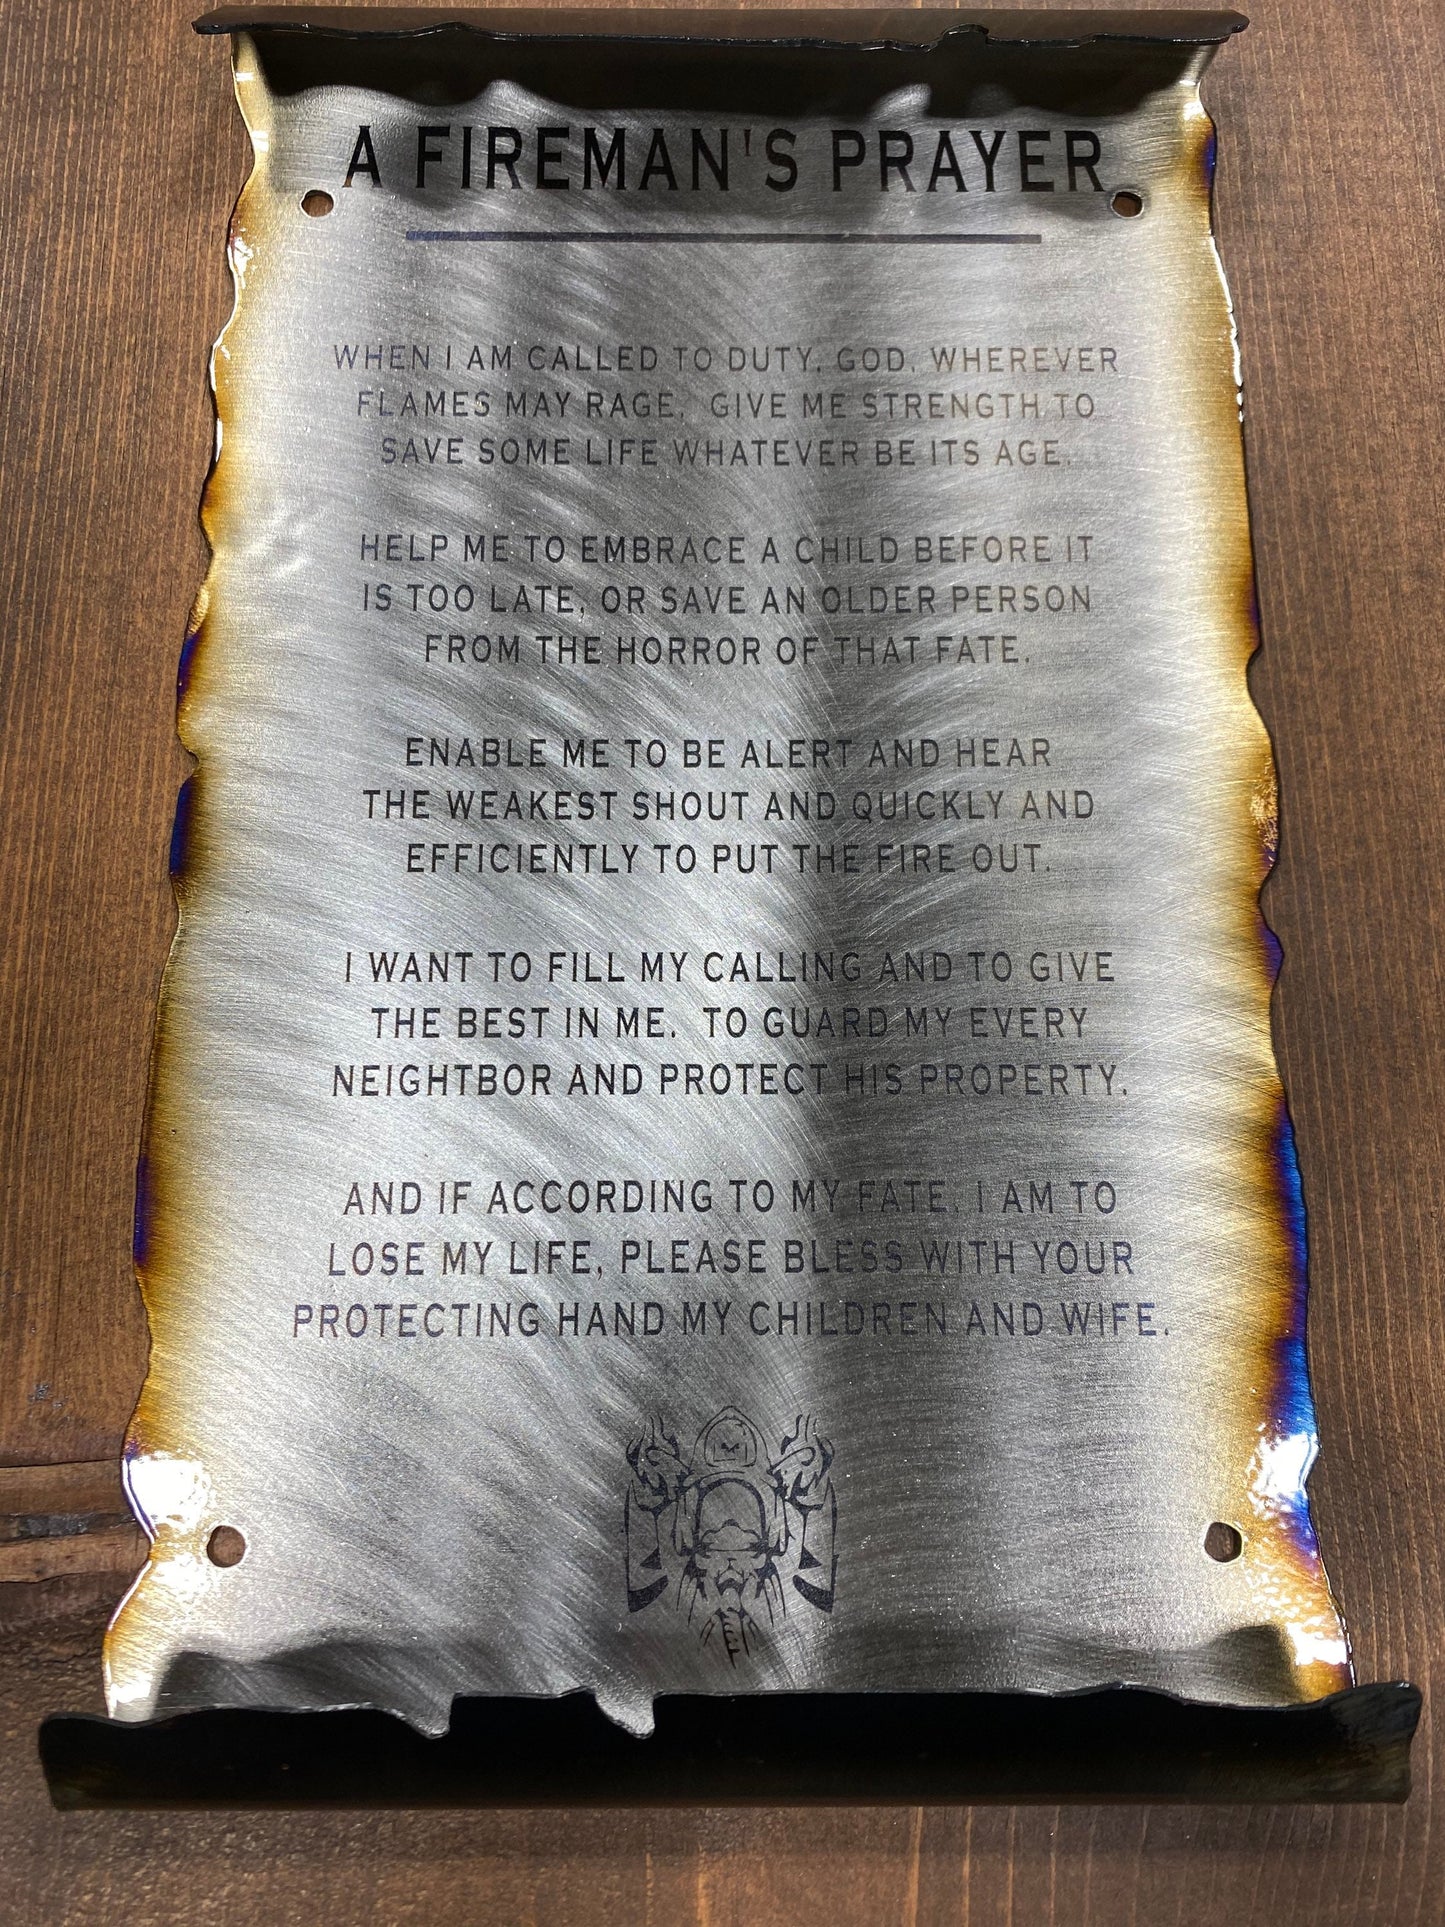 A FIREMAN'S PRAYER
WHEN I AM CALLED TO DUTY, GOD, WHEREVER
FLAMES MAY RAGE,  GIVE ME STRENGTH TO
SAVE SOME LIFE WHATEVER BE ITS AGE.
HELP ME TO EMBRACE A CHILD BEFORE IT
IS TOO LATE, OR SAVE AN OLDER PERSON
FROM THE HORROR OF THAT FATE.
ENABLE ME TO BE ALERT AND HEAR
THE WEAKEST SHOUT AND QUICKLY AND
EFFICIENTLY TO PUT THE FIRE OUT.
I WANT TO FILL MY CALLING AND TO GIVE
THE BEST IN ME.  TO GUARD MY EVERY
NEIGHTBOR AND PROTECT HIS PROPERTY.
AND IF ACCORDING TO MY FATE, I AM TO
LOSE MY LIFE, PLEASE BLESS WITH YOUR
PROTECTING HAND MY CHILDREN AND WIFE.